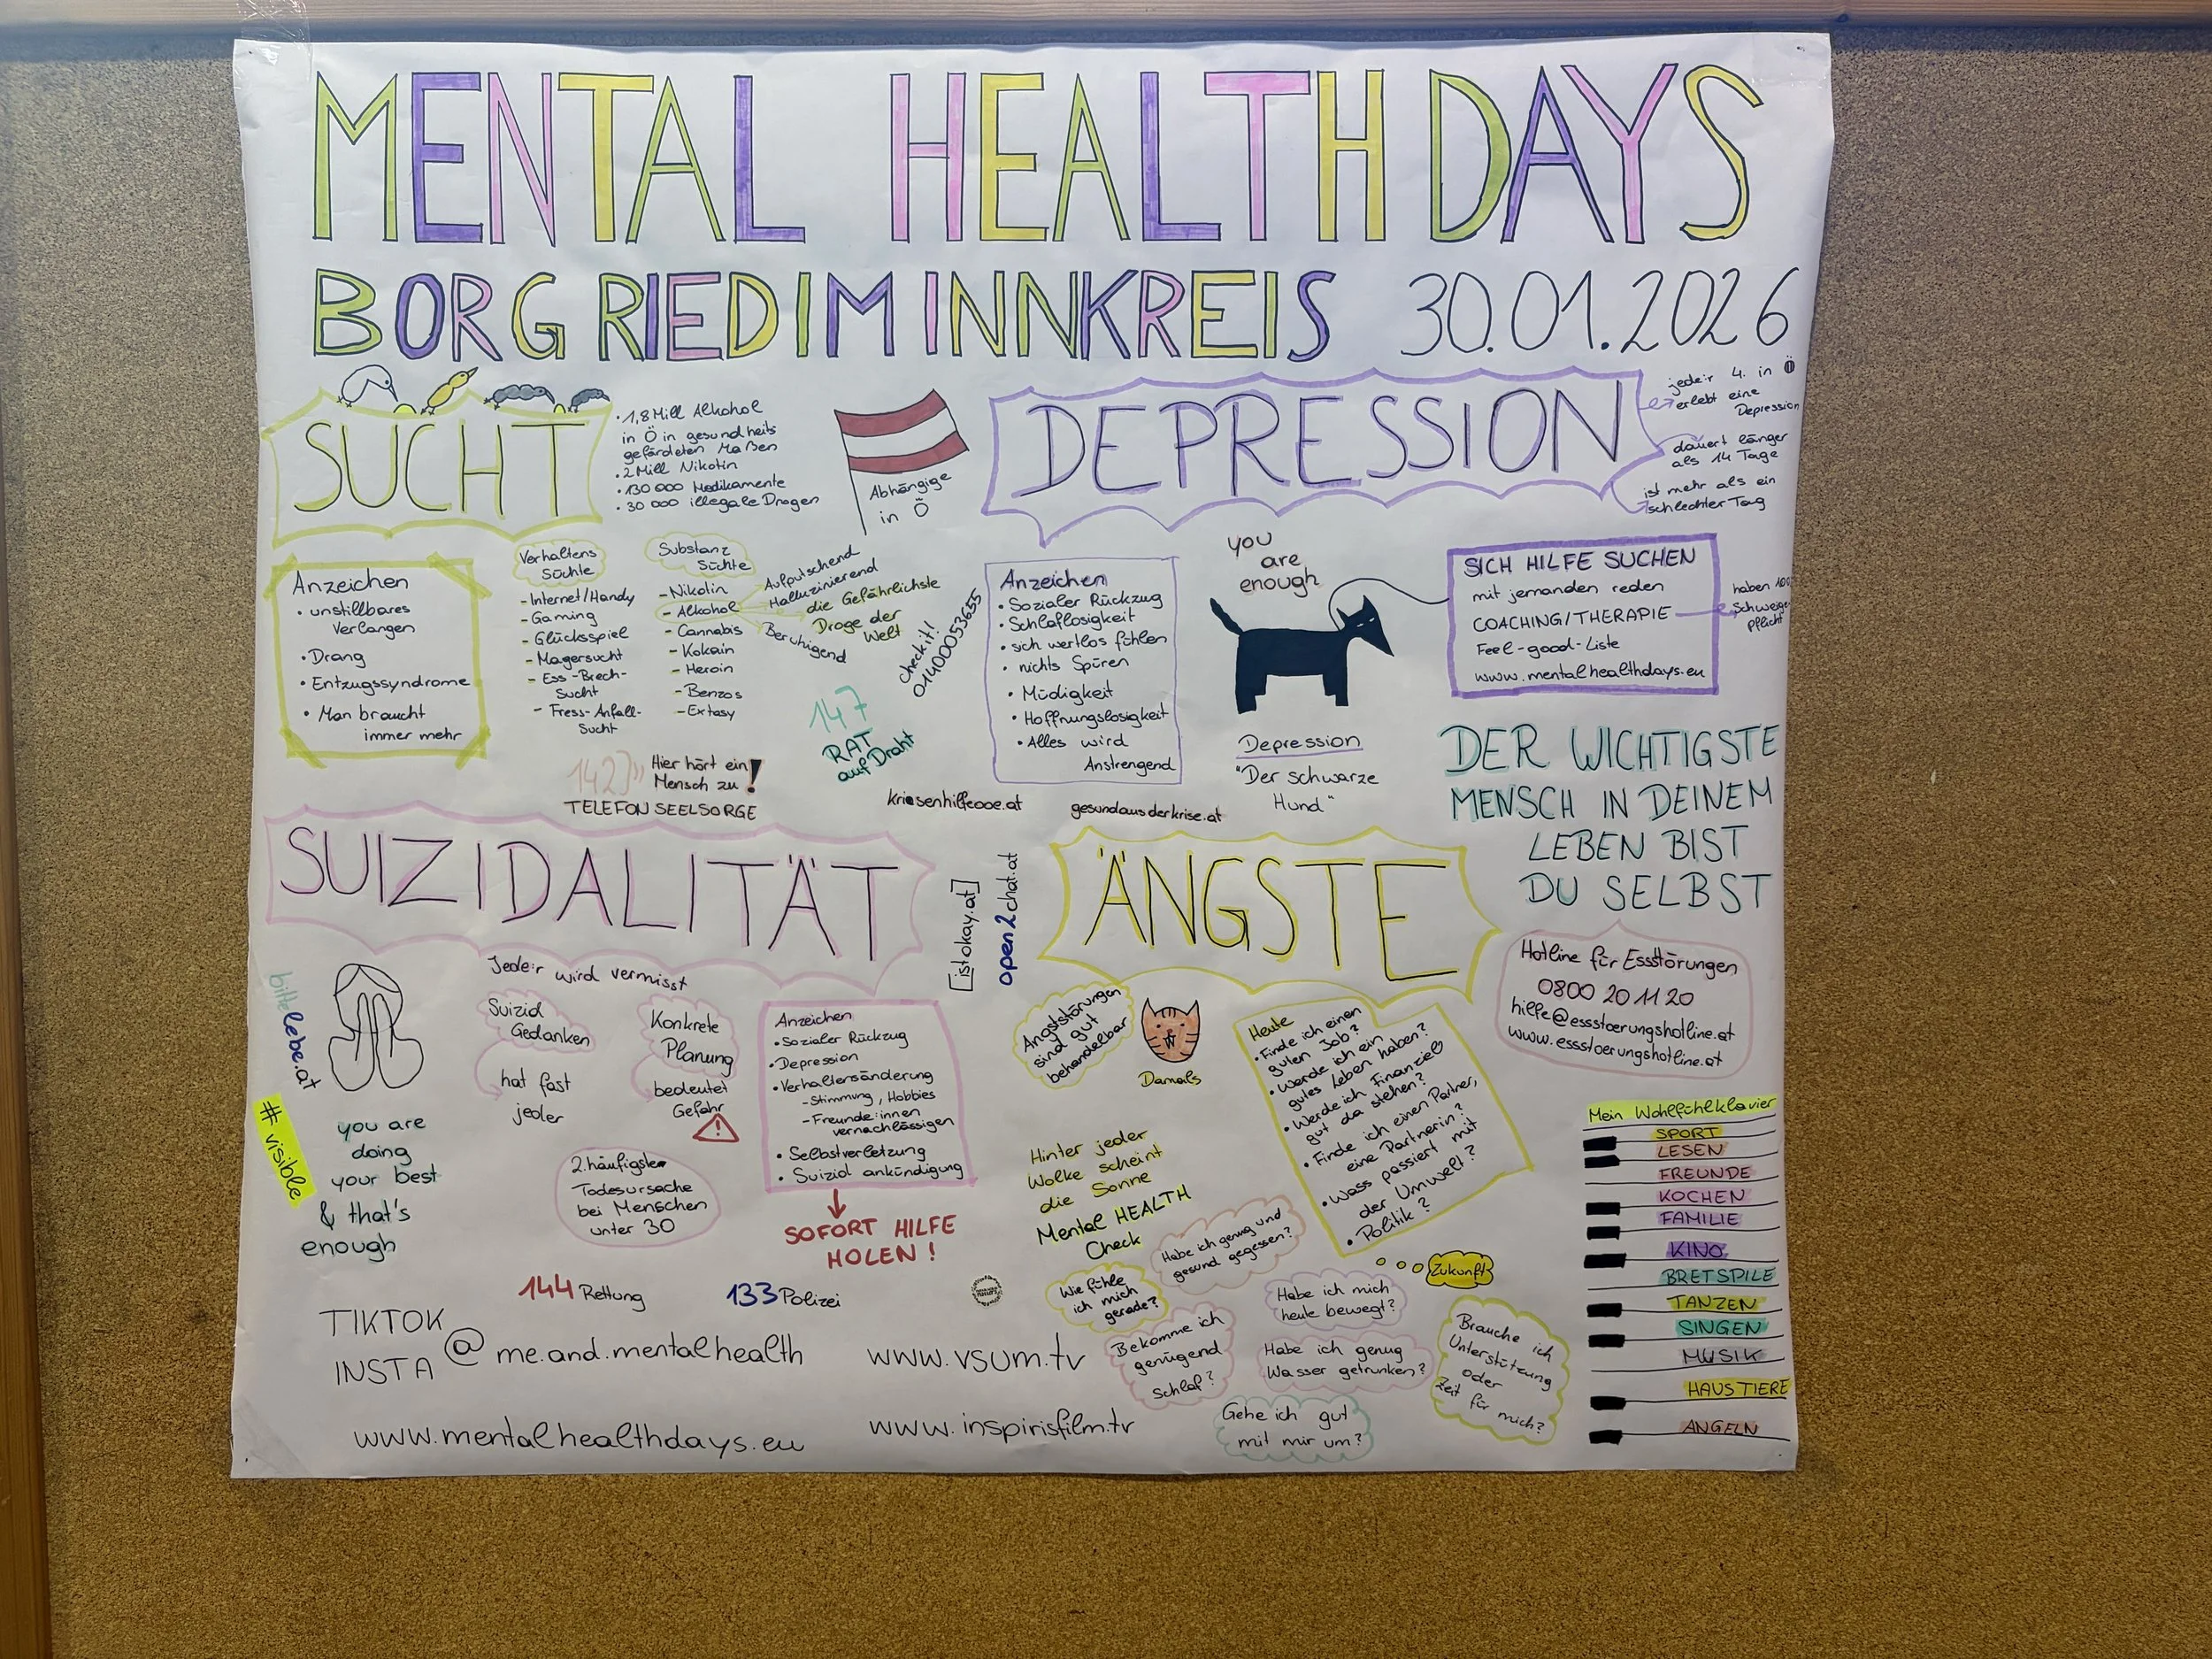 MENTAL HEALTH DAYS
BORG RIED IM INNKREIS 30.01.2026
SUCHT
• 1,8 Mill Alkohol
in Ö in gesundheits
gefärdeten Maßen
• 2 Mill Nikotin
• 130 000 Medikamente
• 30 000 illegale Drogen
Abhängige
in Ö
DEPRESSION
jede:r 4. in Ö
erlebt eine
Depression
dauert länger
als 14 Tage
ist mehr als ein
schlechter Tag
Anzeichen
• unstillbares
Verlangen
• Drang
• Entzugssyndrome
• Man braucht
immer mehr
Verhaltens
Süchte
- Internet/Handy
- Gaming
- Glücksspiel
- Magersucht
- Ess-Brech-
Sucht
- Fress-Anfall-
Sucht
Substanz
Süchte
- Nikotin
- Alkohol
- Cannabis
- Kokain
- Heroin
- Benzos
- Extasy
Aufputschend
Halluzinierend
die Gefährlichste
Droge der
Welt
Beruhigend
checkit!
014000053655
147
RAT
auf Draht
142
Hier hört ein
Mensch zu!
TELEFONSEELSORGE
Anzeichen
• Sozialer Rückzug
• Schlaflosigkeit
• sich wertlos fühlen
• nichts Spüren
• Müdigkeit
• Hoffnungslosigkeit
• Alles wird
Anstrengend
you
are
enough
Depression
"Der schwarze
Hund"
SICH HILFE SUCHEN
mit jemanden reden
COACHING/THERAPIE
Feel-good-Liste
www.mentalhealthdays.eu
haben
Schweige
pflicht
krisenhilfeooe.at
gesundausderkrise.at
DER WICHTIGSTE
MENSCH IN DEINEM
LEBEN BIST
DU SELBST
SUIZIDALITÄT
[istokay.at]
open2chat.at
ÄNGSTE
bittelebe.at
Jede:r wird vermisst
Suizid
Gedanken
hat fast
jeder
Konkrete
Planung
bedeutet
Gefahr
Anzeichen
• Sozialer Rückzug
• Depression
• Verhaltensänderung
- Stimmung, Hobbies
- Freunde:innen
vernachlässigen
• Selbstverletzung
• Suizid ankündigung
SOFORT HILFE
HOLEN!
#visible
you are
doing
your best
& that's
enough
2. häufigste
Todesursache
bei Menschen
unter 30
144 Rettung
133 Polizei
Angststörungen
sind gut
behandelbar
Damals
Heute
• Finde ich einen
guten Job?
• Werde ich ein
gutes Leben haben?
• Werde ich Finanziell
gut da stehen?
• Finde ich einen Partner,
eine Partnerin?
• Wass passiert mit
der Umwelt?
• Politik?
Zukunft
Hotline für Essstörungen
0800 20 11 20
hilfe@essstoerungshotline.at
www.essstoerungshotline.at
Hinter jeder
Wolke scheint
die Sonne
Mental HEALTH
Check
Habe ich genug und
gesund gegessen?
Wie fühle
ich mich
gerade?
Habe ich mich
heute bewegt?
Bekomme ich
genügend
Schlaf?
Habe ich genug
Wasser getrunken?
Brauche ich
Unterstützung
oder
Zeit für mich?
Gehe ich gut
mit mir um?
Mein Wohlfühlklavier
SPORT
LESEN
FREUNDE
KOCHEN
FAMILIE
KINO
BRETSPILE
TANZEN
SINGEN
MUSIK
HAUSTIERE
ANGELN
TIKTOK
INSTA @me.and.mentalhealth
www.vsum.tv
www.mentalhealthdays.eu
www.inspirisfilm.tv